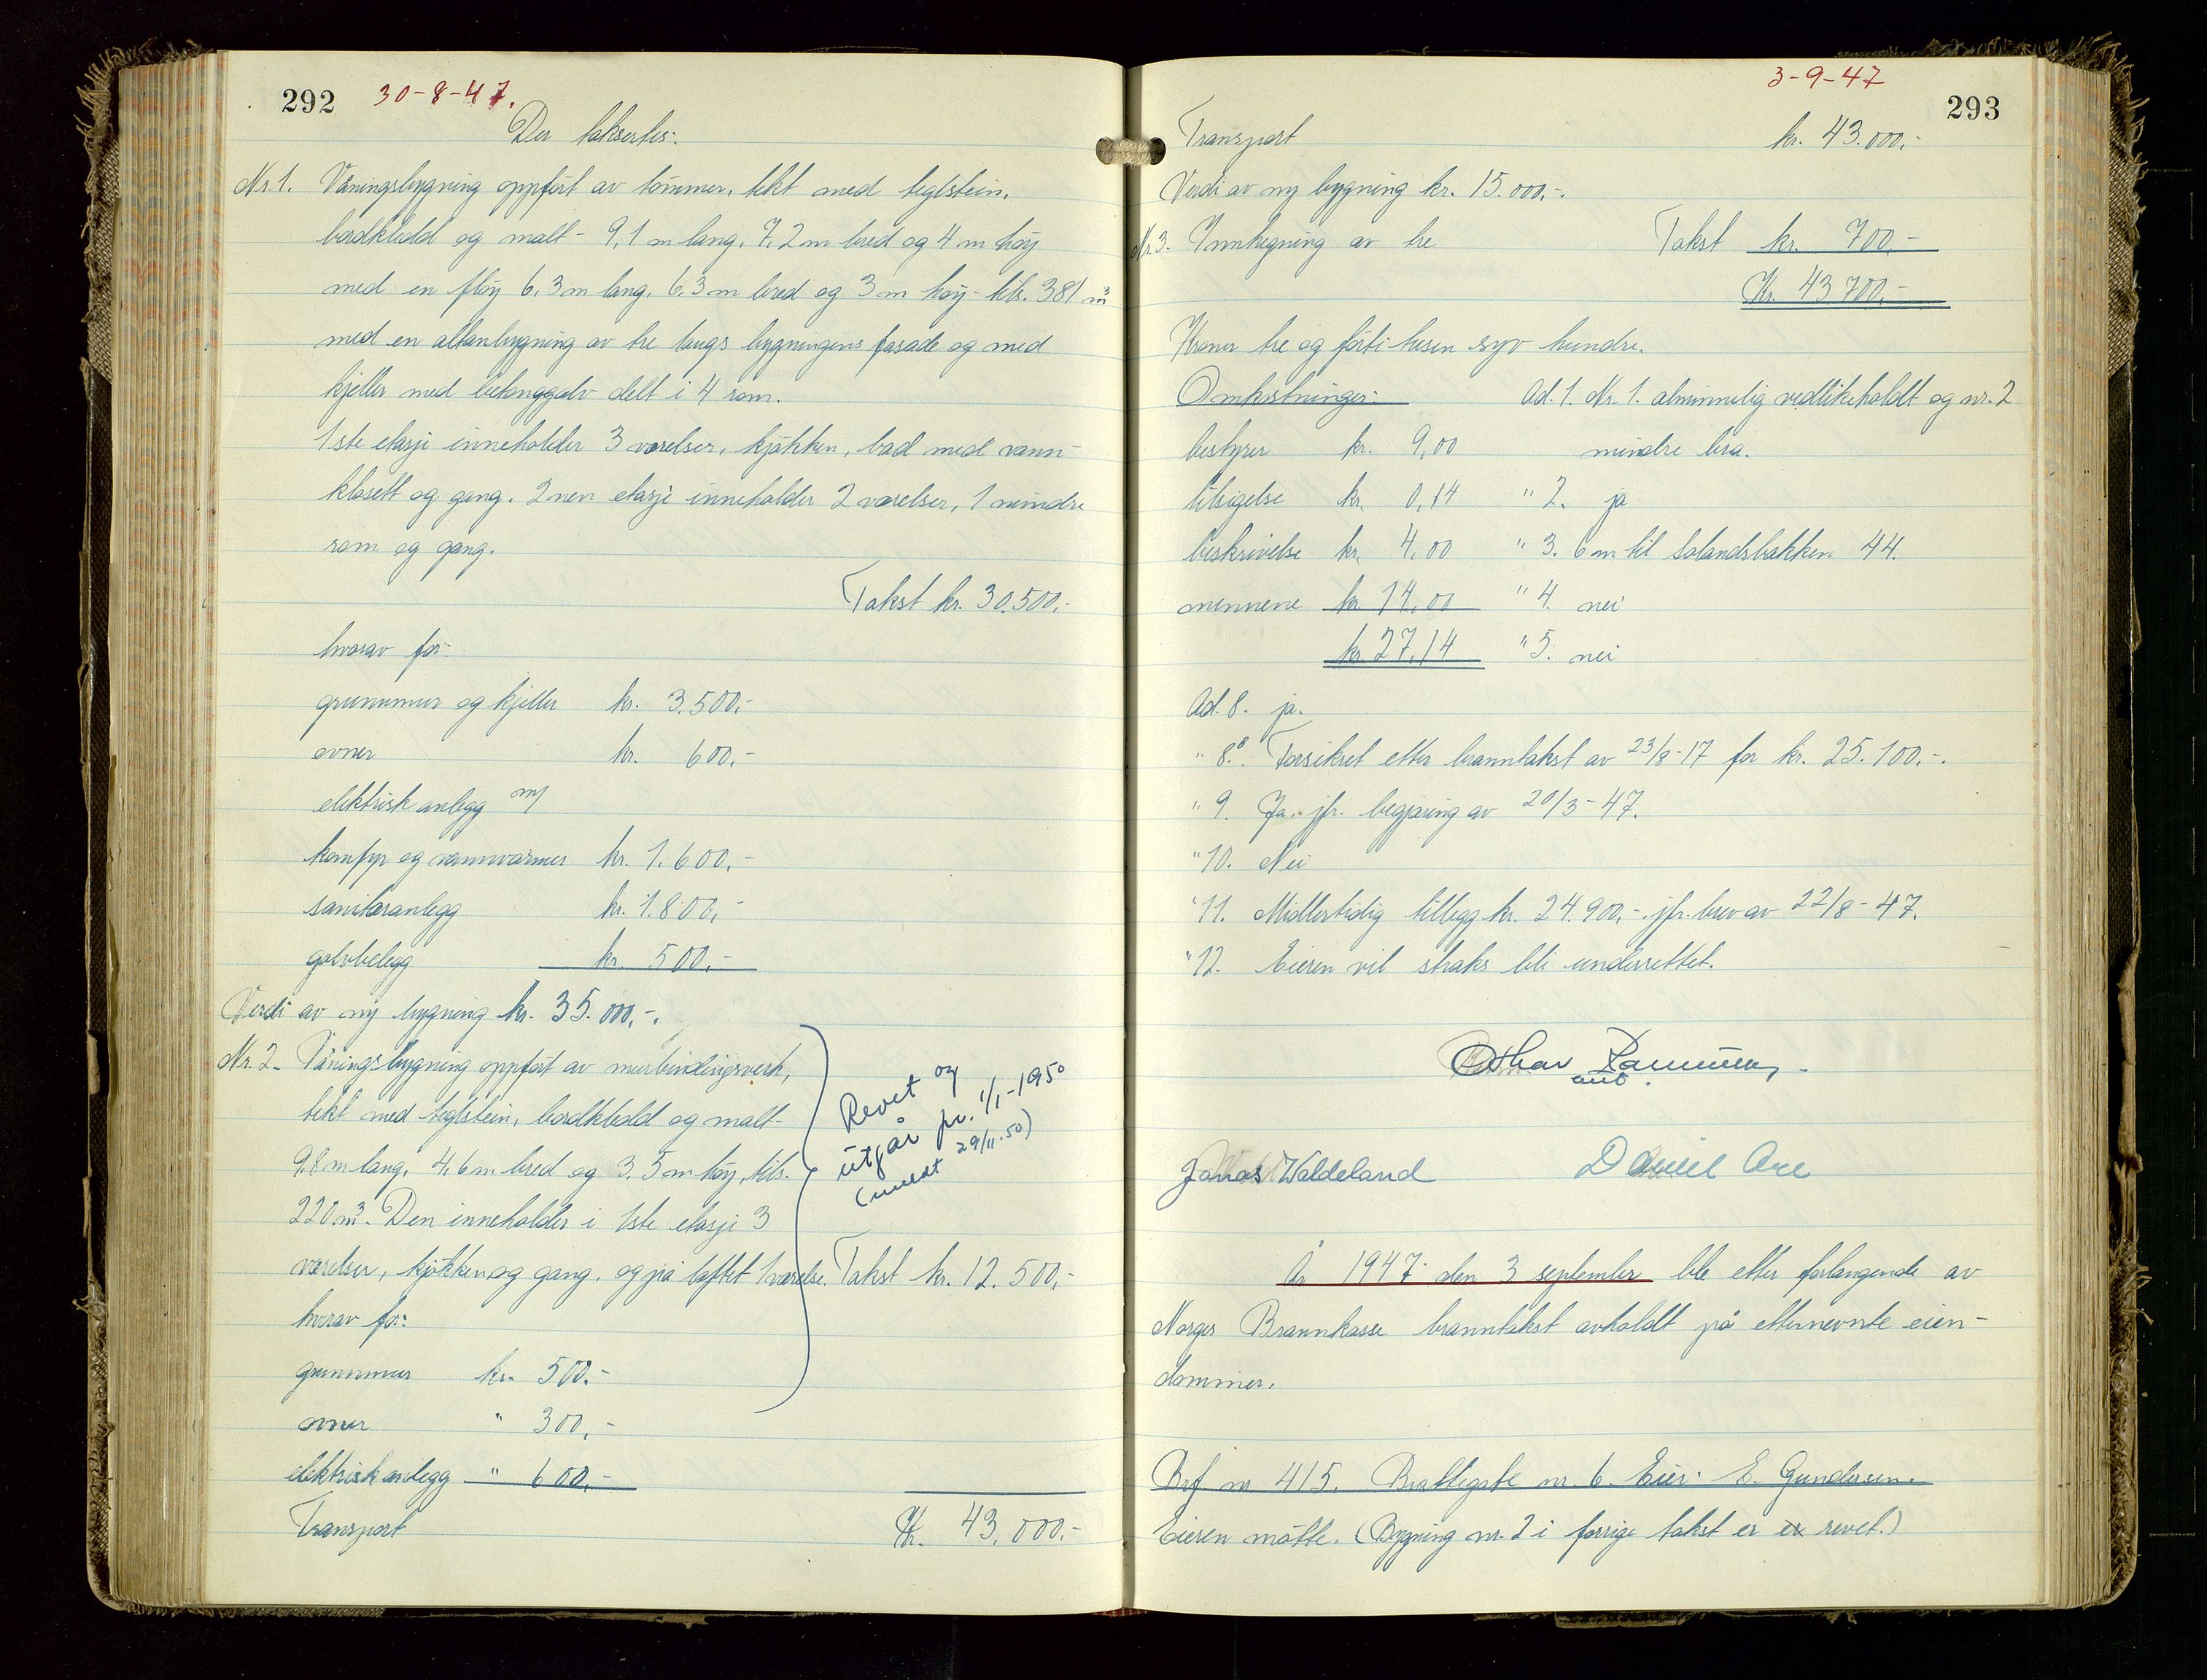 292 30-8-47.
Der taksertes:
Nr. 1. Våningsbygning oppført av tømmer, tekt med teglstein,
bordkledd og malt - 9,1 m lang, 7,2 m bred og 4 m høy
med en fløy 6,3 m lang, 6,3 m bred og 3 m høy - tils. 381 m³
med en altanbygning av tre langs bygningens fasade og med
kjeller med betonggolv delt i 4 rom.
1ste etasje inneholder 3 værelser, kjøkken, bad med vann-
klosett og gang. 2nen etasje inneholder 2 værelser, 1 mindre
rom og gang.
Takst kr. 30.500,-
hvorav for:
grunnmur og kjeller kr. 3.500,-
ovner kr. 600,-
elektrisk anlegg m/
komfyr og vannvarmer kr. 1.600,-
sanitæranlegg kr. 1.800,-
golvbelegg kr. 500,-
Verdi av ny bygning kr. 35.000,-.
Nr. 2. Våningsbygning oppført av murbindingsverk,
tekt med teglstein, bordkledd og malt -
9,8 m lang, 4,6 m bred og 3,5 m høy, tils.
220 m³. Den inneholder i 1ste etasje 3
værelser, kjøkken og gang, og på loftet 1 værelse. Takst kr. 12.500,-
hvorav for:
grunnmur kr. 500,-
ovner " 300,-
elektrisk anlegg " 600,-
Transport Kr. 43.000,-
Revet og
utgår pr. 1/1-1950
(meldt 29/11-50)
3-9-47
293
Transport kr. 43.000,-
Verdi av ny bygning kr. 15.000,-.
Nr. 3. Innhegning av tre Takst kr. 700,-
Kr. 43 700,-
Kroner tre og førti tusen syv hundre.
Omkostninger: Ad. 1. Nr. 1. alminnelig vedlikeholdt og nr. 2
bestyrer kr. 9,00 mindre bra.
tilsigelse kr. 0,14 " 2. ja
beskrivelse kr. 4,00 " 3. 6 m til Solandsbakken 44.
mennene kr 14,00 " 4. nei
kr 27,14 " 5. nei
Ad. 8. ja.
" 8B. Forsikret etter branntakst av 23/8-17 for kr. 25.100,-.
" 9. Ja. jfr. begjæring av 20/3-47.
" 10. Nei
" 11. Midlertidig tillegg kr. 24.900,-. jfr. brev av 22/8-47.
" 12. Eieren vil straks bli underrettet.
Othar Rasmussen
Jonas Waldeland Daniel Are
År 1947 den 3 september ble etter forlangende av
Norges Brannkasse branntakst avholdt på etternevnte eien-
dommer.
Brf nr 415. Brattegate nr. 6. Eier: E. Gundersen.
Eieren møtte. (Bygning nr. 2 i forrige takst er er revet.)